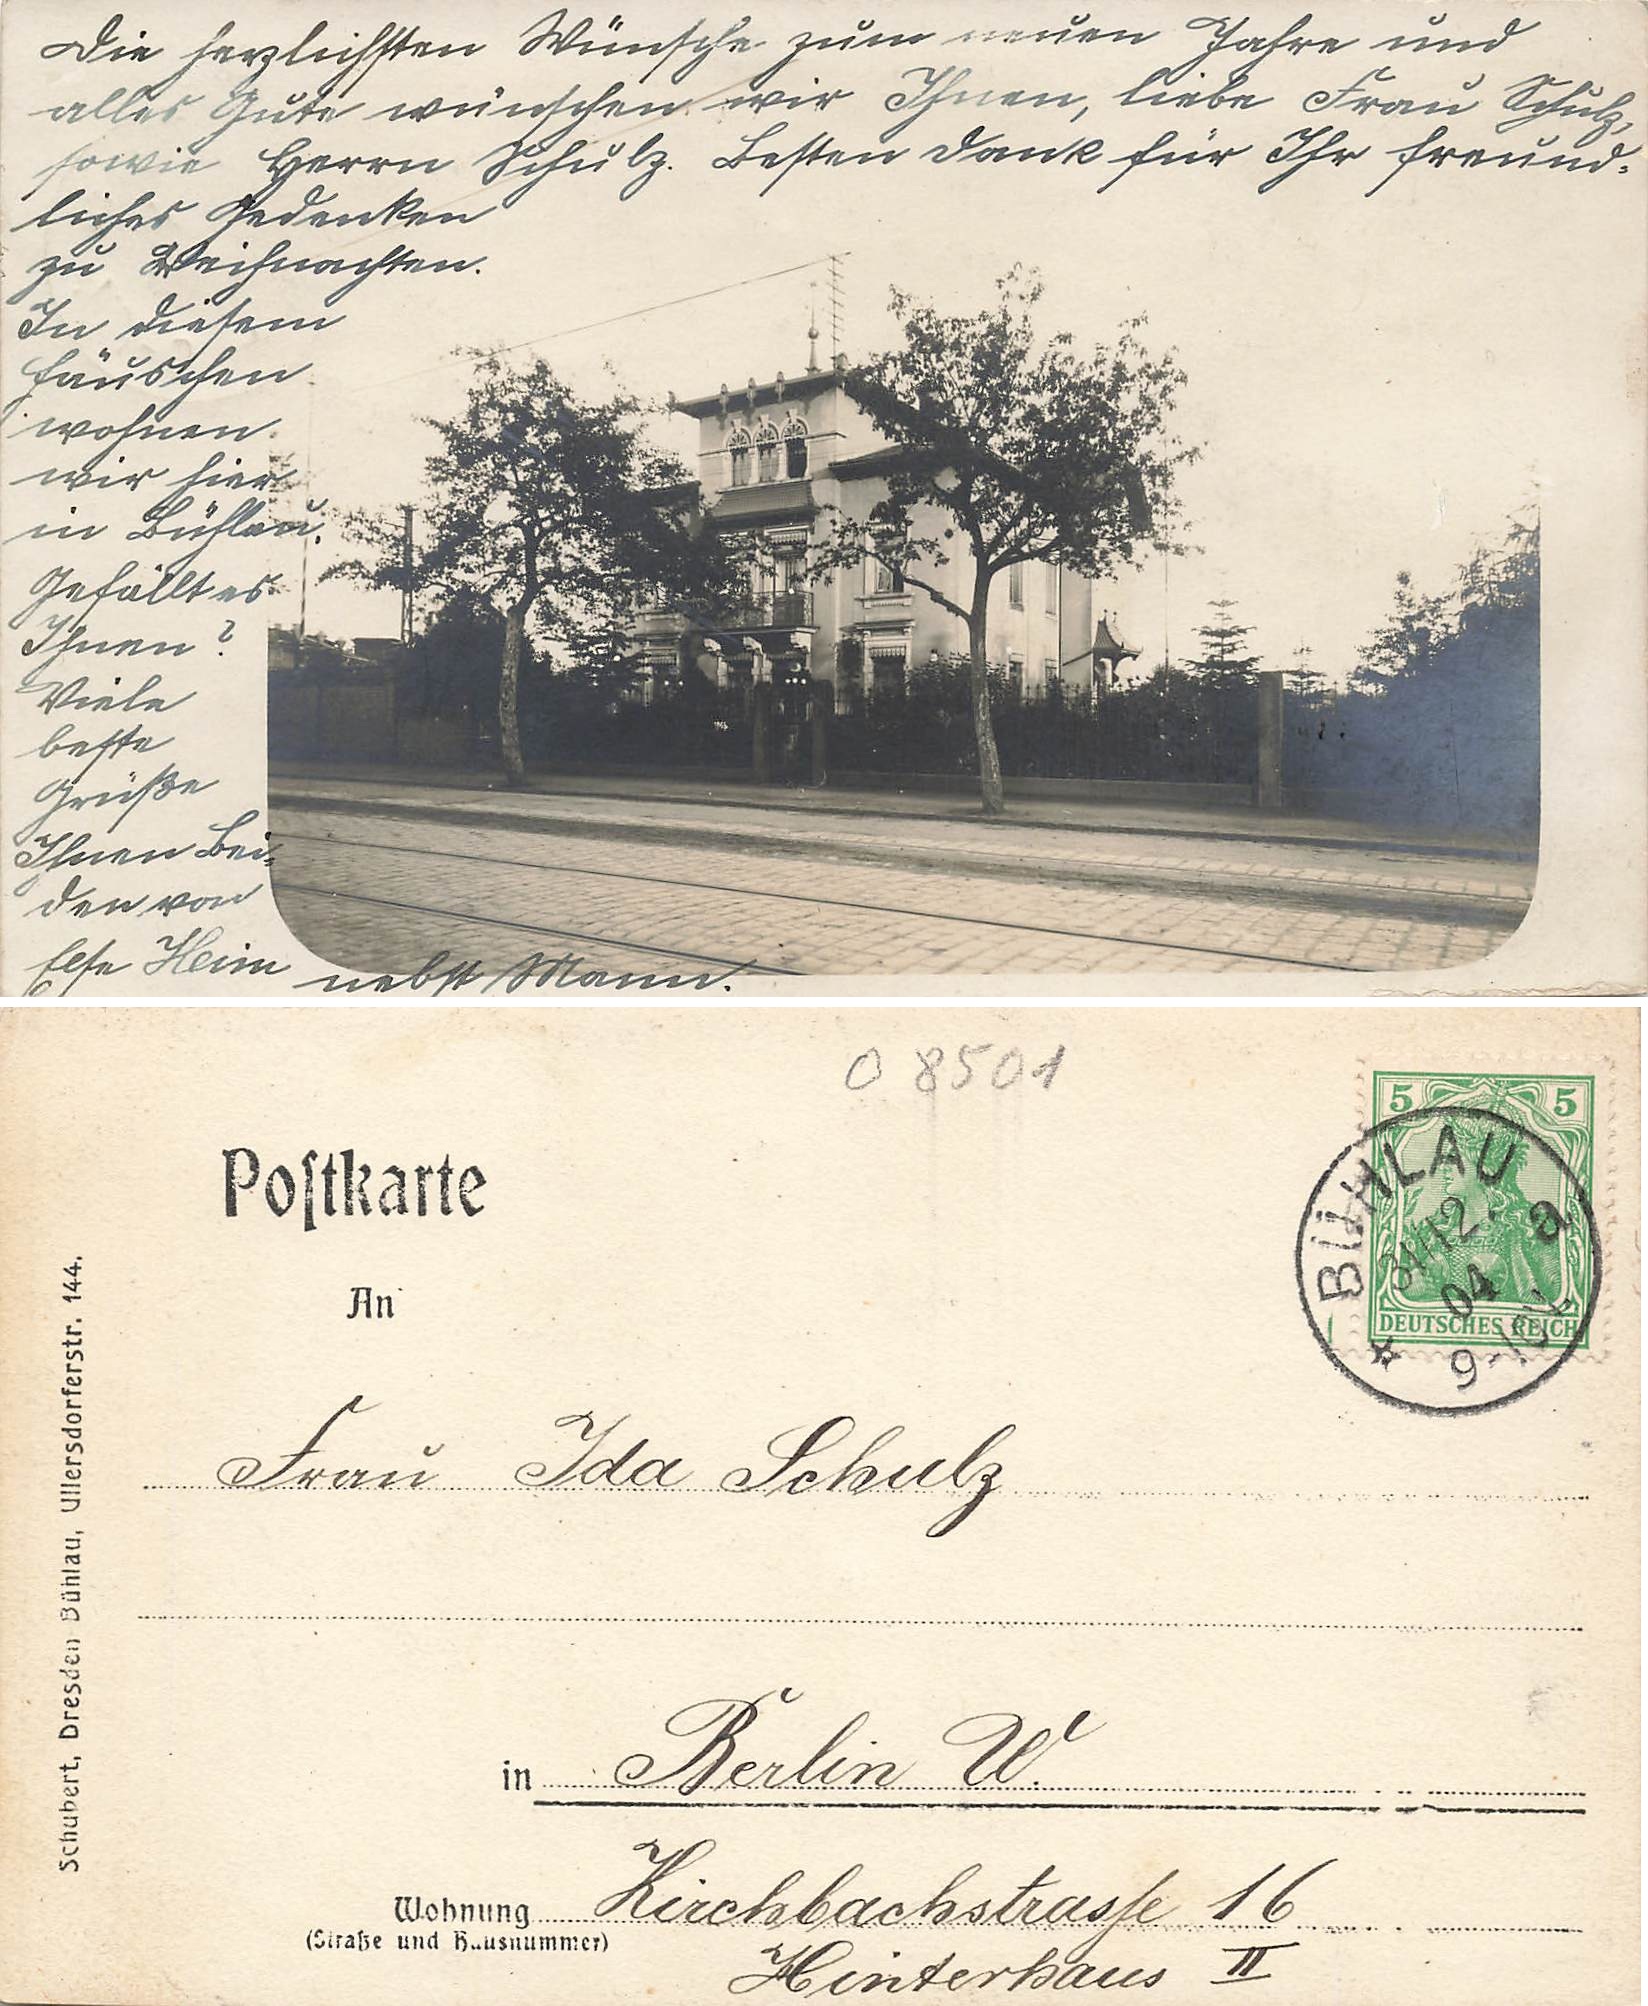 Die herzlichsten Wünsche zum neuen Jahre und
alles Gute wünschen wir Ihnen, liebe Frau Schulz,
sowie Herrn Schulz. Besten Dank für Ihr freund-
liches Gedenken
zu Weihnachten.
In diesem
Häuschen
wohnen
wir hier
in Bühlau.
Gefällt es
Ihnen?
Viele
beste
Grüße
Ihnen Bei-
den von
Else Heim nebst Mann.
0 8501
Postkarte
An
5 5
DEUTSCHES REICH
BÜHLAU
a
31/12.
04
9-10V.
Frau Ida Schulz
in Berlin W.
Wohnung Kirchbachstrasse 16
(Straße und Hausnummer)
Hinterhaus II
Schubert, Dresden Bühlau, Ullersdorferstr. 144.